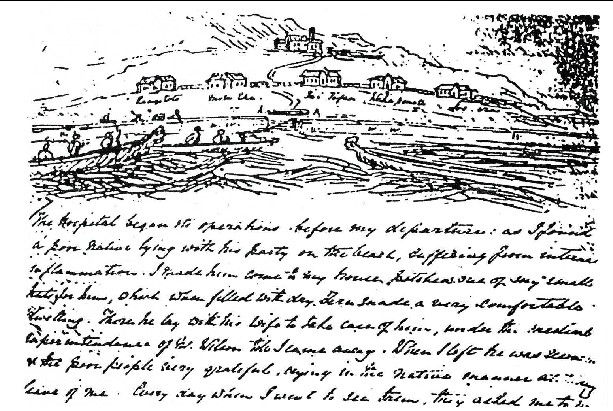 A A
The Hospital began its operations before my departure: as I found
a poor Native lying with his party on the beach, suffering from intense
inflammation. I made him come to my house, pitched one of my small
tents for him, which when filled with dry Fern made a very comfortable
dwelling. There he lay with his wife to take care of him, under the medical
superintendence of W. Wilson till I came away. When I left he was
& the poor people very grateful, crying in the native manner at my
leave of me. Every day when I went to see them, they asked me to